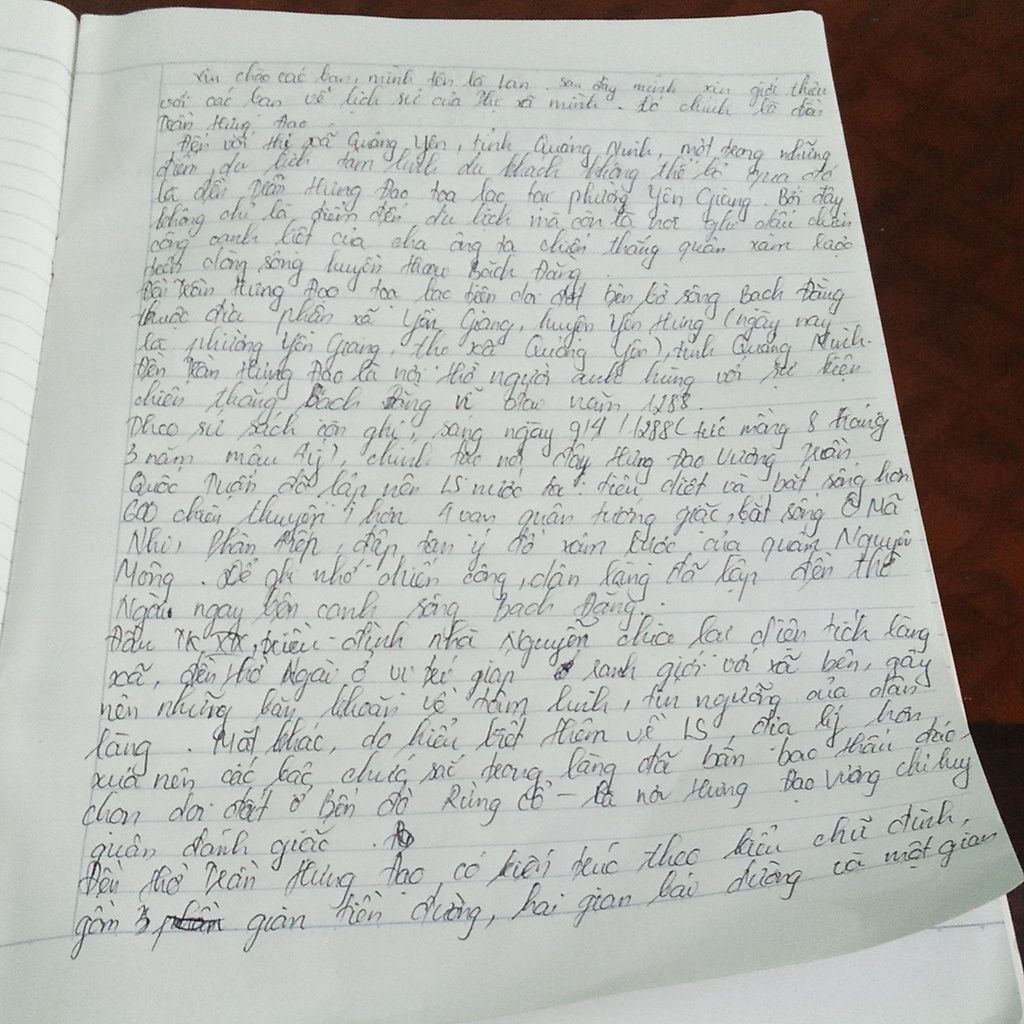 Xin chào các bạn, mình tên là Lan. sau đây mình xin giới thiệu
với các bạn về lịch sử của thị xã mình. đó chính là đền
Trần Hưng Đạo.
Đến với thị xã Quảng Yên, tỉnh Quảng Ninh, một trong những
điểm du lịch tâm linh du khách không thể bỏ qua đó
là đền Trần Hưng Đạo tọa lạc tại phường Yên Giang. Bởi đây
không chỉ là điểm đến du lịch mà còn là nơi ghi dấu chiến
công oanh liệt của cha ông ta chiến thắng quân xâm lược
trên dòng sông huyền thoại Bạch Đằng.
Đền Trần Hưng Đạo tọa lạc trên doi đất bên bờ sông Bạch Đằng
thuộc địa phận xã Yên Giang, huyện Yên Hưng (ngày nay
là phường Yên Giang, thị xã Quảng Yên), tỉnh Quảng Ninh.
Đền Trần Hưng Đạo là nơi thờ người anh hùng với sự kiện
chiến thắng Bạch Đằng vĩ đại năm 1288.
Theo sử sách còn ghi, sáng ngày 9/4/1288 (tức mồng 8 tháng
3 năm mậu tý), chính tại nơi đây Hưng Đạo Vương Trần
Quốc Tuấn đã lập nên LS nước ta: tiêu diệt và bắt sống hơn
600 chiến thuyền, hơn 4 vạn quân tướng giặc, bắt sống Ô Mã
Nhi, Phàn Tiếp, đập tan ý đồ xâm lược của quân Nguyên
Mông. Để ghi nhớ chiến công, dân làng đã lập đền thờ
Ngài ngay bên cạnh sông Bạch Đằng.
Đầu TK XIX, triều đình nhà Nguyễn chia lại diện tích làng
xã, đền thờ Ngài ở vị trí giáp ranh giới với xã bên, gây
nên những băn khoăn về tâm linh, tín ngưỡng của dân
làng. Mặt khác, do hiểu biết thêm về LS, địa lý hơn
xưa nên các bậc chức sắc trong làng đã bàn bạc thấu đáo,
chọn doi đất ở Bến đò Rừng cổ - là nơi Hưng Đạo Vương chỉ huy
quân đánh giặc.
Đền thờ Trần Hưng Đạo có kiến trúc theo kiểu chữ đinh,
gồm 3 gian tiền đường, hai gian bái đường và một gian